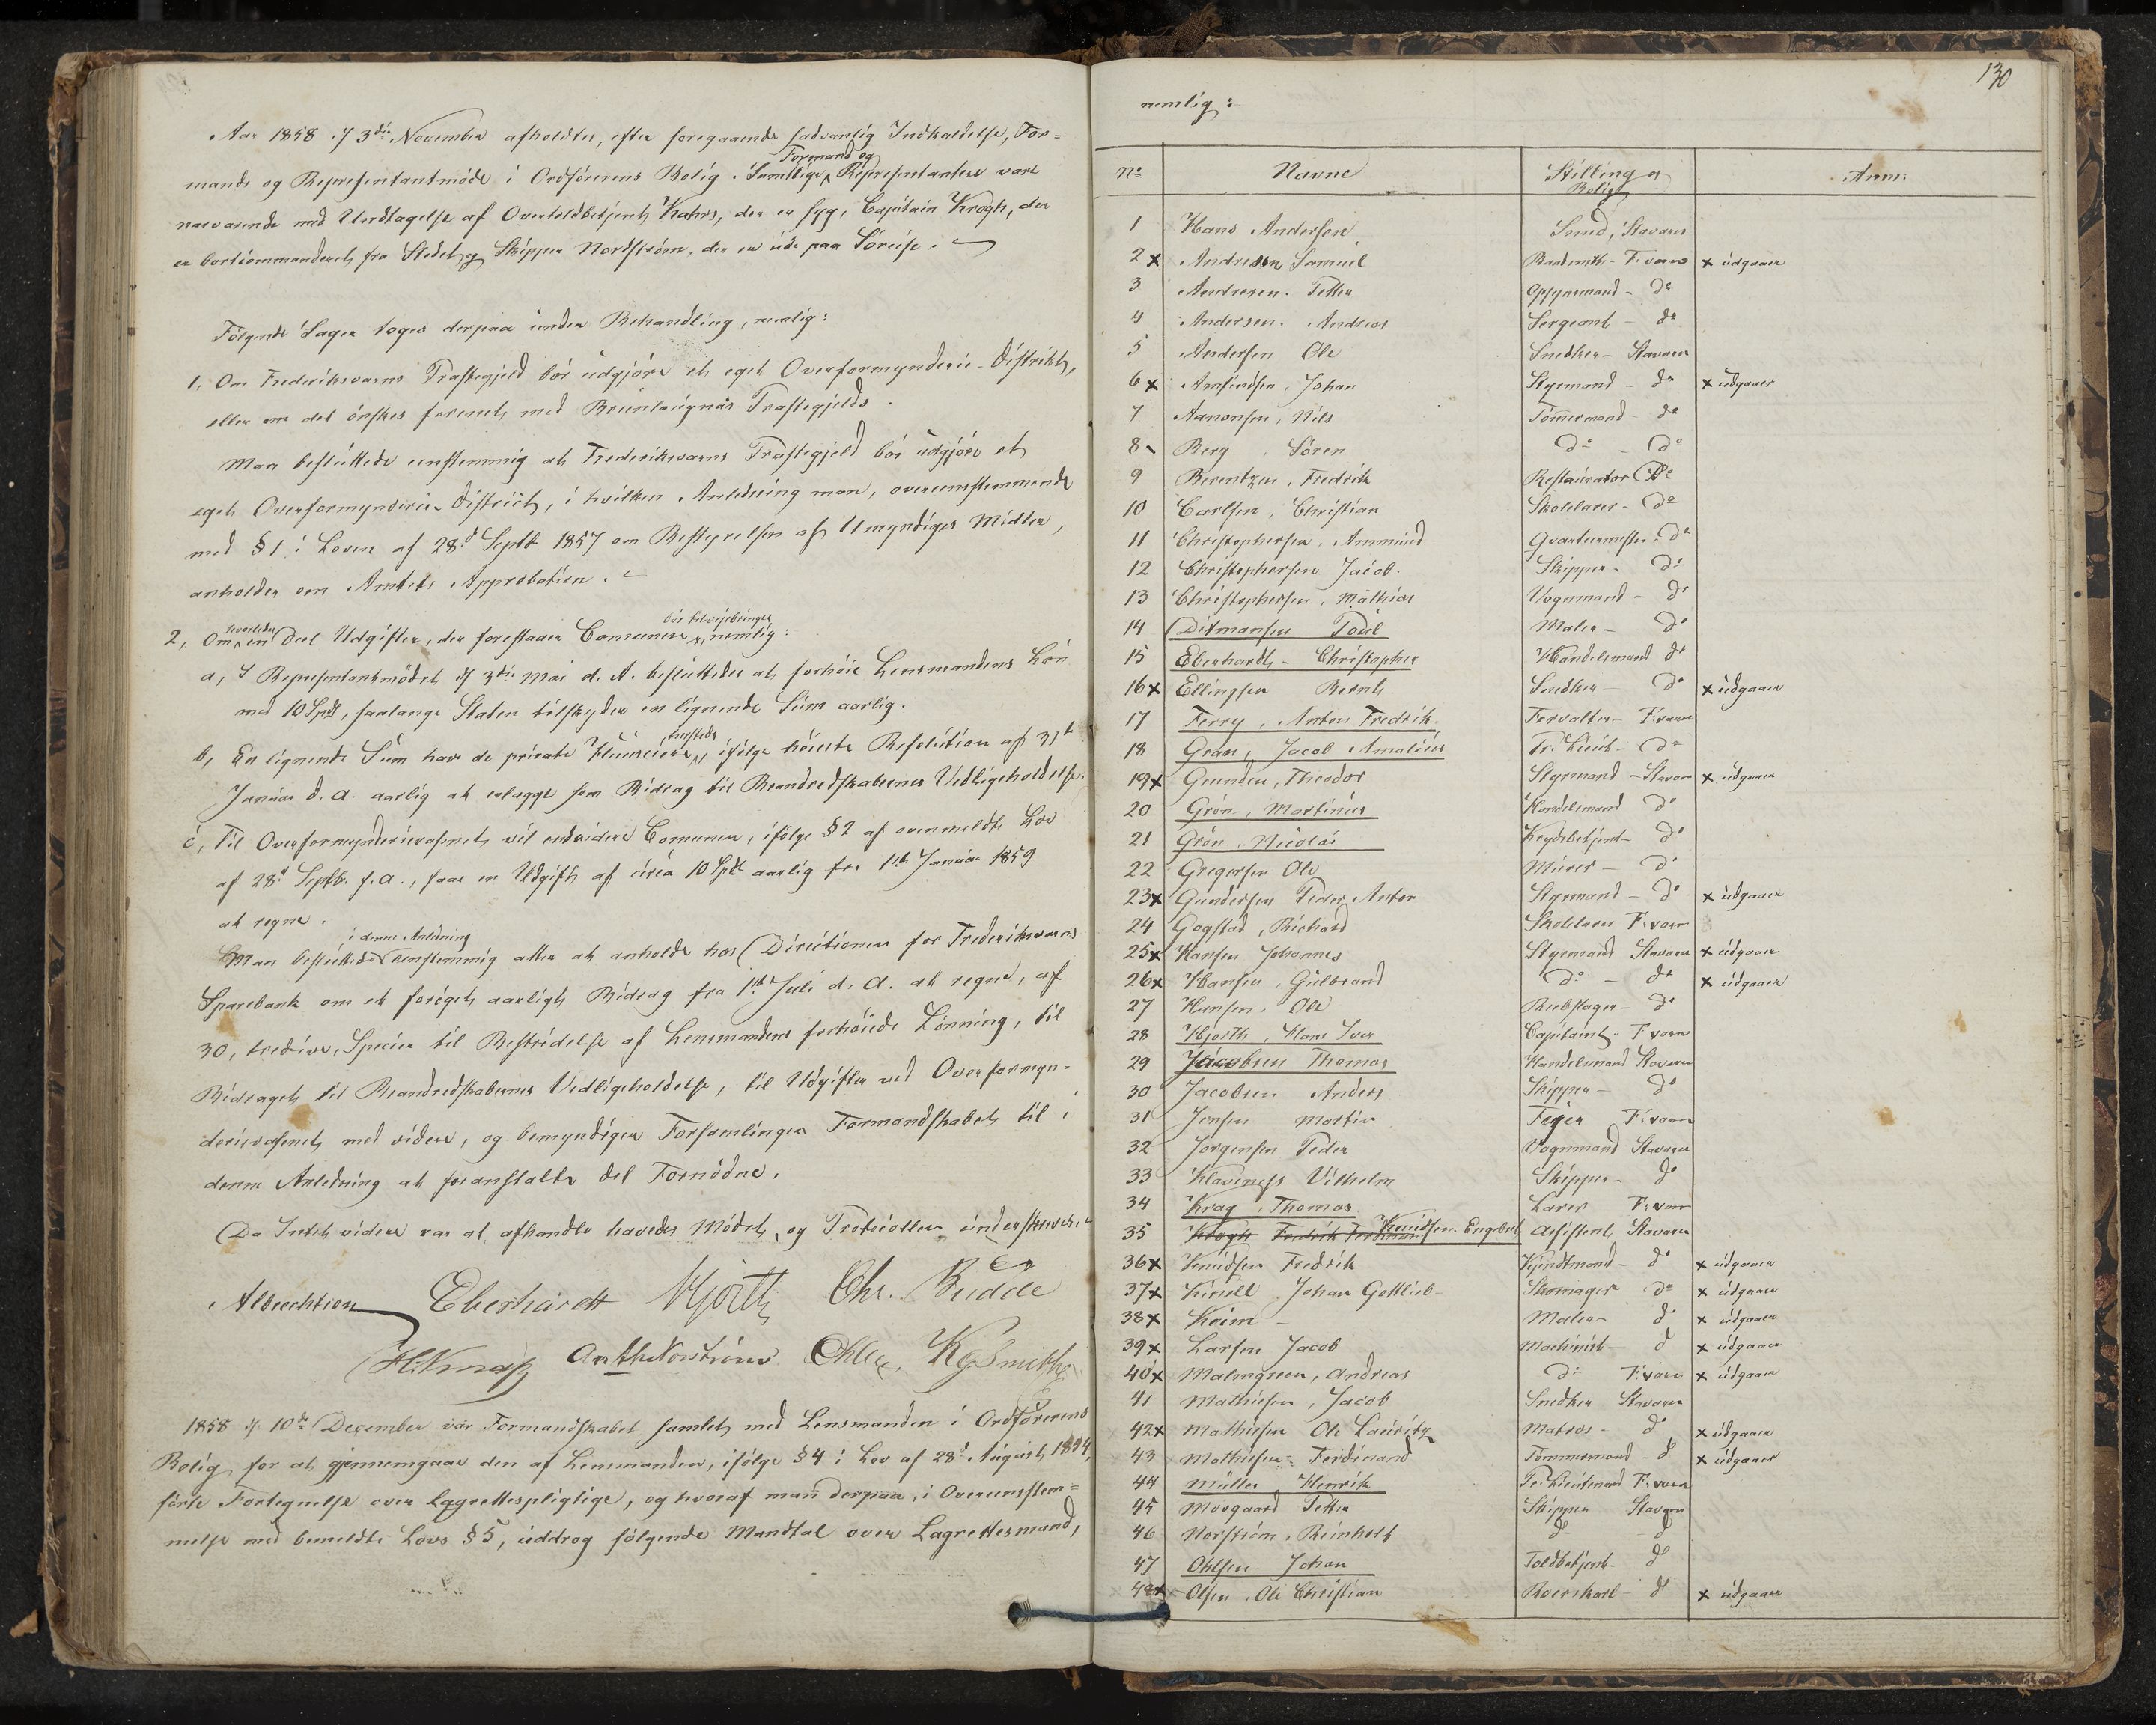 Aar 1858 d/ 3die November afholdtes, efter foregaaende sædvanlig Indkaldelse, For=
mands og Repræsentantmøde i Ordførerens Bolig. Samtlige Formand og Repræsentanter vare
nærværende med Undtagelse af Overtoldbetjent Kahrs, der er syg, Capitain Krogh, der
er bortcommanderet fra Stedet og Skipper Nordstrøm, der er ude paa Søreise.
Følgende Sager toges derpaa under Behandling, nemlig:
1, Om Frederiksværns Præstegjeld bør udgjøre et eget Overformynderie-Distrikt,
eller om det ønskes forenet med Brunlaugnæs Præstegjelds.
Man besluttede eenstemmig at Frederiksværns Præstegjeld bør udgjøre et
eget Overformynderie District, i hvilken Anledning man, overeensstemmende
med § 1 i Loven af 28d Septb 1857 om Bestyrelsen af Umyndiges Midler,
anholder om Amtets Approbation.
2, Om hvorledes en Deel Udgifter, der forestaaer Comunen, bør tilveiebringes, nemlig:
a, I Repræsentantmødet d/ 3die Mai d. A. besluttedes at forhøie Lensmandens Løn
med 10 Spd, saalænge Staten tilskyder en lignende Sum aarlig.
b, En lignende Sum have de private Huuseiere hersteds, ifølge høieste Resolution af 31t
Januar d. A. aarlig at erlægge som Bidrag til Brandredskabernes Vedligeholdelse.
c, Til Overformynderievæsenet vil endvidere Comunen, ifølge § 2 af ovenmeldte Lov
af 28d Septb. f. A., faae en Udgift af circa 10 Spd aarlig fra 1st Januar 1859
at regne.
Man besluttede i denne Anledning eenstemmig atter at anholde hos Directionen for Frederiksværns
Sparebank om et forøget aarligt Bidrag fra 1st Juli d. A. at regne, af
30, tredive, Specier til Bestridelse af Lensmandens forhøiede Lønning, til
Bidraget til Brandredskabernes Vedligeholdelse, til Udgifter ved Overformyn-
derievæsenet med videre, og bemyndiger Forsamlingen Formandskabet til i
denne Anledning at foranstalte det Fornødne.
Da Intet videre var at afhandle hævedes Mødet, og Protocollen underskreves.
Albrechtson Eberhardt Hjorth Chr. Budde
H. Knap Norstrøm Ohlsen Smith
1858 d/ 10de December var Formandskabet samlet med Lensmanden i Ordførerens
Bolig for at gjennemgaae den af Lensmanden, ifølge § 4 i Lov af 28d August 1854,
førte Fortegnelse over Laggrettespligtige, og hvoraf man derpaa, i Overeensstem=
melse med bemeldte Lovs § 5, uddrog følgende Mandtal over Lagrettesmænd,
130
nemlig:
No Navne Stilling og Bolig Anm:
1 Hans Andersen Smed, Staværn
2 x Andresen Samuel Baadsmth - F.værn x udgaaer
3 Andresen. Petter Opsynsmand - do
4 Andersen. Andreas Sergeant - do
5 Andersen Ole Snedker - Staværn
6 x Amundsen, Johan Styrmand - do x udgaaer
7 Aanonsen, Nils Tømmermand - do
8 Berg, Søren do - do
9 Berentzen, Fredrik Restaurator do
10 Carlsen, Christian Skolelærer - do
11 Christophersen, Ammund Qvarteermester - do
12 Christophersen Jacob. Skipper - do
13 Christophersen, Mathias Vognmand - do
14 Ditmansen Poul Maler - do
15 Eberhardt - Christopher Handelsmand do
16 x Ellingsen Bernt Snedker - do x udgaaer
17 Ferry, Anton Fredrik. Forvalter - F.værn
18 Gran, Jacob Amalius Pr. Lieut - do
19 x Grunden, Theodor Styrmand - Staværn x udgaaer
20 Grøn, Martinius Handelsmand do
21 Grøn, Nicolai Krydsbetjent - do
22 Gregersen Ole Murer - do
23 x Gundersen Peder Anton Styrmand - do x udgaaer
24 Gogstad, Richard Skolelærer F.værn
25 x Hansen Johannes Styrmand Staværn x udgaaer
26 x Hansen, Gulbrand do - do x udgaaer
27 Hansen. Ole Rebslager - do
28 Hjorth, Hans Iver Capitaint - F.værn
29 Jacobsen Thomas Handelsmand Staværn
30 Jacobsen Anders Skipper - do
31 Jensen Martin Feier F.værn
32 Jørgensen Peder Vognmand Staværn
33 Klaveness Vilhelm Skipper - do
34 Krag, Thomas Lærer F.værn
35 Krogh Fredrik Ferdinand Knudsen. Engebret Assistent Staværn
36 x Knudsen Fredrik Kjendtmand - do x udgaaer
37 x Johan Gottlieb - Skomager do x udgaaer
38 x Keim - Maler - do x udgaaer
39 x Larsen Jacob Machinist - do x udgaaer
40 x Malmgreen, Andreas do F.værn x udgaaer
41 Mathiesen, Jacob Snedker Staværn
42 x Mathiesen Ole Lauritz Matros - do x udgaaer
43 Mathiesen - Ferdinand Tømmermand - do x udgaaer
44 Müller Henrik Pr: Lieutenant F.værn
45 Movgaard Petter Skipper Staværn
46 Norstrøm, Reinholt do - do
47 Ohlsen Johan Toldbetjent - do
48 x Olsen, Ole Christian Roerskarl - do x udgaaer